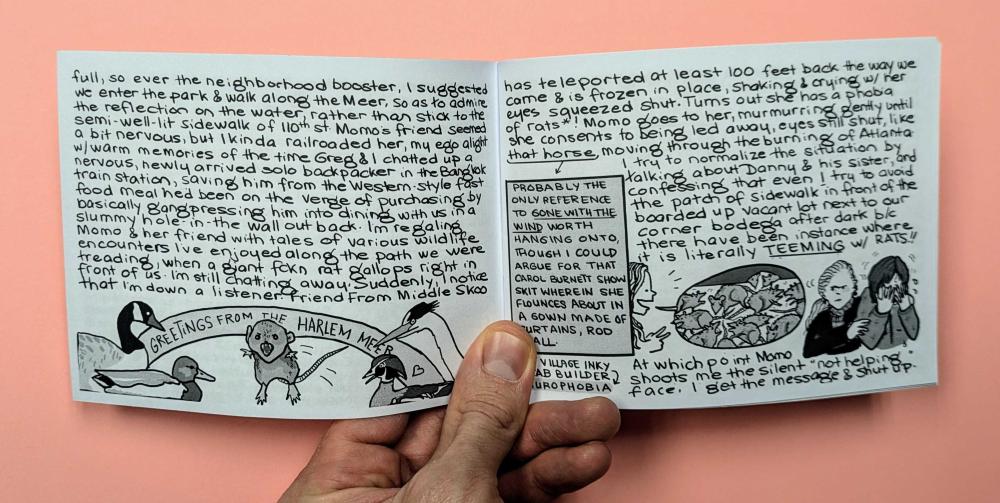 full, so ever the neighborhood booster, I suggested
we enter the park & walk along the Meer, so as to admire
the reflection on the water, rather than stick to the
semi-well-lit sidewalk of 110th st. Momo's friend seemed
a bit nervous, but I kinda railroaded her, my ego alight
w/warm memories of the time Greg & I chatted up a
nervous, newly arrived solo backpacker in the Bangkok
train station, saving him from the Western-style fast
food meal hed been on the verge of purchasing by
basically gangpressing him into dining with us in a
slummy hole-in-the wall out back. I'm regaling
Momo & her friend with tales of various wildlife
encounters I've enjoyed along the path we were
treading, when a giant fckn rat gallops right in
front of us. I'm still chatting away. Suddenly, I notice
that I'm down a listener. Friend From Middle Skoo
GREETINGS FROM THE HARLEM MEER
has teleported at least 100 feet back the way we
came & is frozen in place, shaking & crying w/ her
eyes squeezed shut. Turns out she has a phobia
of rats*! Momo goes to her, murmurring gently until
she consents to being led away, eyes still shut, like
that horse, moving through the burning of Atlanta
I try to normalize the situation by
talking about Danny & his sister, and
confessing that even I try to avoid
the patch of sidewalk in front of the
boarded up vacant lot next to our
corner bodega after dark b/c
there have been instance where
it is literally TEEMING w/ RATS!!
PROBABLY THE
ONLY REFERENCE
TO GONE WITH THE
WIND WORTH
HANGING ONTO,
THOUGH I COULD
ARGUE FOR THAT
CAROL BURNETT SHOW
SKIT WHEREIN SHE
FLOUNCES ABOUT IN
A GOWN MADE OF
CURTAINS, ROD
ALL.
VILLAGE INKY
AB BUILDER
UROPHOBIA
At which point Momo
shoots me the silent "not helping"
face. I get the message & shut up.